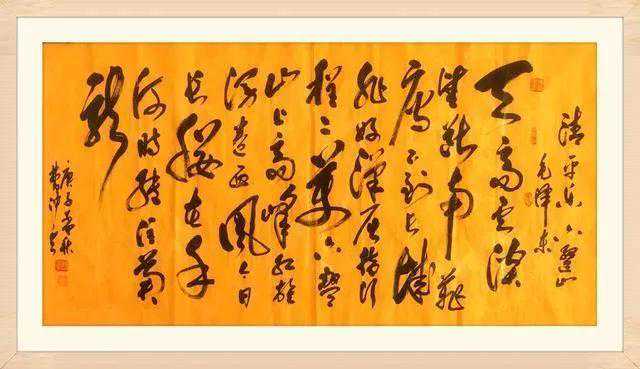 清平乐六盤山
毛澤东
天高云淡
望断南飛
雁不到长城
非好漢屈指行
程二萬六盤
山上高峰红旗
漫卷西風今日
长缨在手
何时缚住苍
龍
庚子暮秋